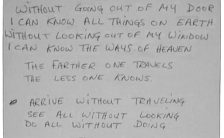 WITHOUT GOING OUT OF MY DOOR
I CAN KNOW ALL THINGS ON EARTH
WITHOUT LOOKING OUT OF MY WINDOW
I CAN KNOW THE WAYS OF HEAVEN
THE FARTHER ONE TRAVELS
THE LESS ONE KNOWS
ARRIVE WITHOUT TRAVELING
SEE ALL WITHOUT LOOKING
DO ALL WITHOUT DOING